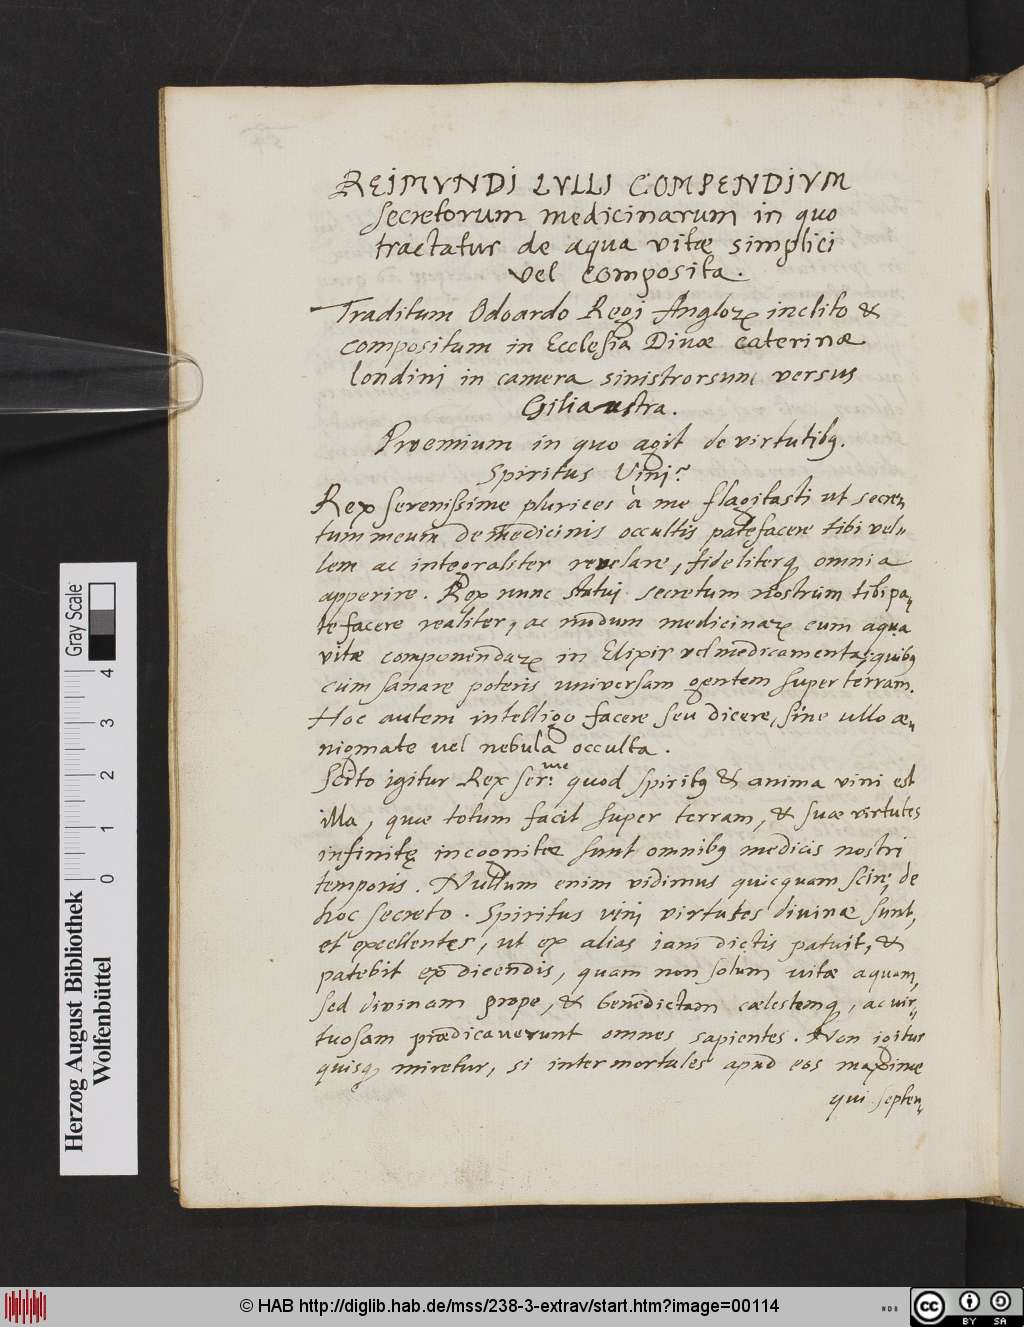 REIMVNDI LVLLI COMPENDIVM
secretorum medicinarum in quo
tractatur de aqua vitæ simplici
vel composita.
Traditum Odoardo Regi Angloꝝ inclito &
compositum in Ecclesia Diuæ Caterinæ
londini in camera sinistrorsum versus
Proemium in quo agit de virtutibꝰ.
Spiritus Vini.
Rex serenissime plurices à me flagitasti ut secre„
tum meum de medicinis occultis patefacere tibi vel„
lem ac integraliter revelare, fideliterqꝫ omnia
apperire. Rex nunc statui secretum nostrum tibi pa„
te facere realiter, ac modum medicinaꝝ cum aqua
vitæ componendaꝝ in Elixir vel medicamenta: quibꝰ
cum sanare poteris universam gentem super terram.
Hoc autem intelligo facere seu dicere, sine ullo æ„
nigmate vel nebula occulta.
Scito igitur Rex ser:me quod spiritꝰ & anima vini est
illa, quæ totum facit super terram, & suæ virtutes
infinitę incognitæ sunt omnibꝰ medicis nostri
temporis. Nullum enim vidimus quicquam scire de
hoc secreto. Spiritus vini virtutes divinæ sunt,
et excellentes, ut ex alias iam dictis patuit, &
patebit ex dicendis, quam non solum vitæ aquam,
sed divinam prope, & benedictam cælestemqꝫ, ac vir„
tuosam prædicaverunt omnes sapientes. Non igitur
quisqꝫ miretur, si inter mortales apud eos maxime
qui septen„
Gray Scale
0 1 2 3 4
Herzog August Bibliothek
Wolfenbüttel
© HAB http://diglib.hab.de/mss/238-3-extrav/start.htm?image=00114
cc BY SA